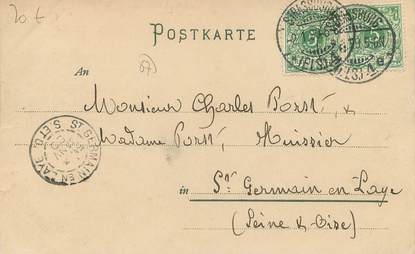 20 t
POSTKARTE
(67)
An
Monsieur Charles Porst, &
Madame Porst, Huissier
in St Germain en Laye
(Seine & Oise)
ST GERMAIN EN LAYE S. ET O.
(ELS) 4